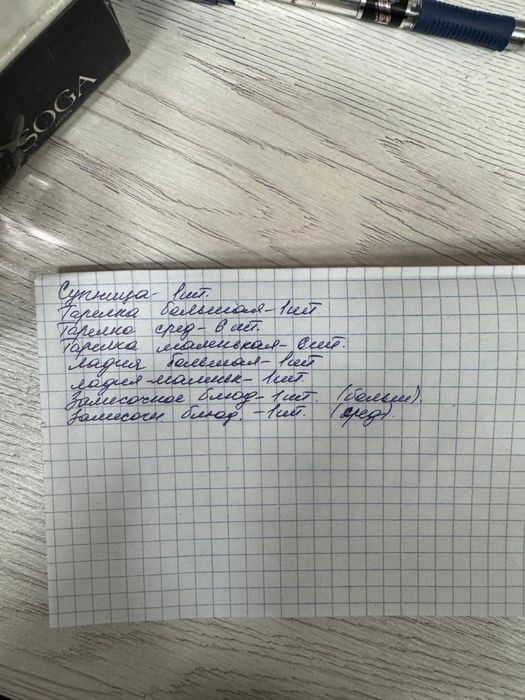 SOGA
Супница - 1шт.
Тарелка большая - 1шт
Тарелка сред - 6 шт.
Тарелка маленькая - 6шт.
ладия большая - 1шт
ладия маленьк - 1шт.
блюд - 1шт. (больш).
блюд. - 1шт. (сред).